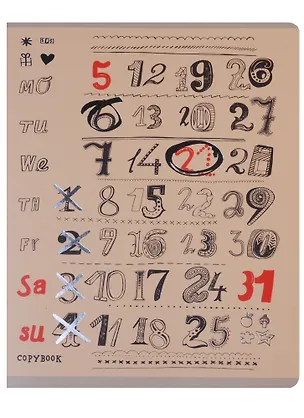 MO 5 12 19 26
TU 6 13 20 27
We 7 14 21 28
TH 1 8 15 22 29
Fr 2 9 16 23 30
Sa 3 10 17 24 31
su 4 11 18 25
COPYBOOK